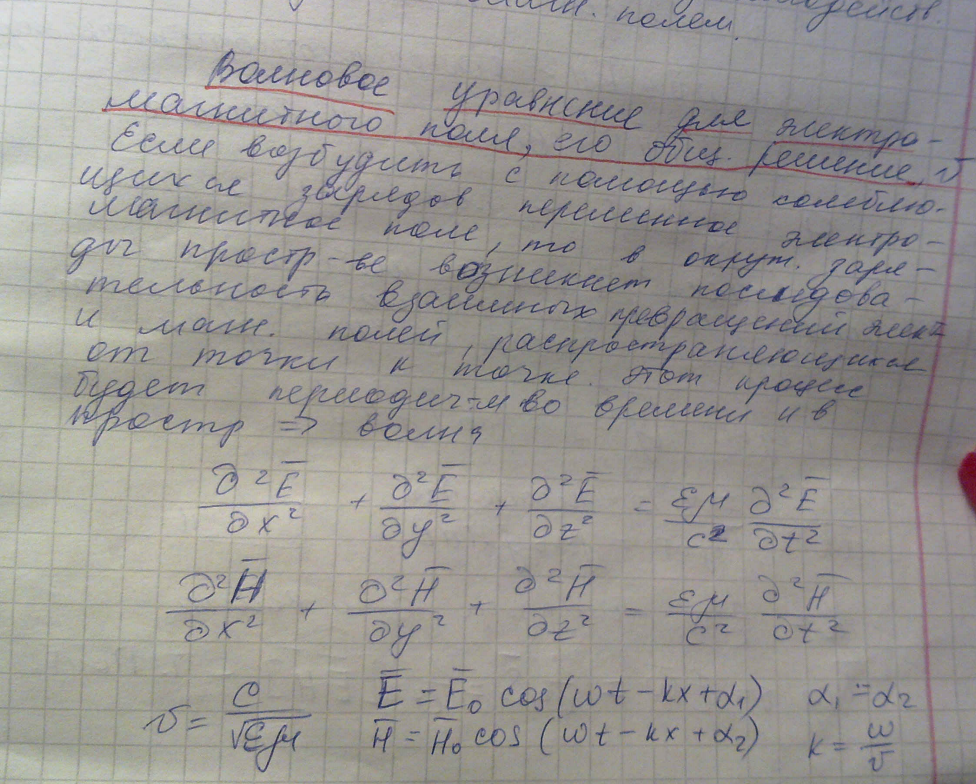 магн. полем.
Волновое уравнение для электро-
магнитного поля, его общ. решение, v
Если возбудить с помощью колеблю-
щихся зарядов переменное электро-
магнитное поле, то в окруж. заря-
ды простр-ве возникнет последова-
тельность взаимных превращений элект
и магн. полей, распространяющихся
от точки к точке. Этот процесс
будет периодич-м во времени и в
простр => волна
∂²E̅/∂x² + ∂²E̅/∂y² + ∂²E̅/∂z² = εμ/c² ∂²E̅/∂t²
∂²H̅/∂x² + ∂²H̅/∂y² + ∂²H̅/∂z² = εμ/c² ∂²H̅/∂t²
v = c/√εμ E̅ = E̅₀ cos(ωt - kx + α₁) α₁ = α₂
H̅ = H̅₀ cos(ωt - kx + α₂) k = ω/v